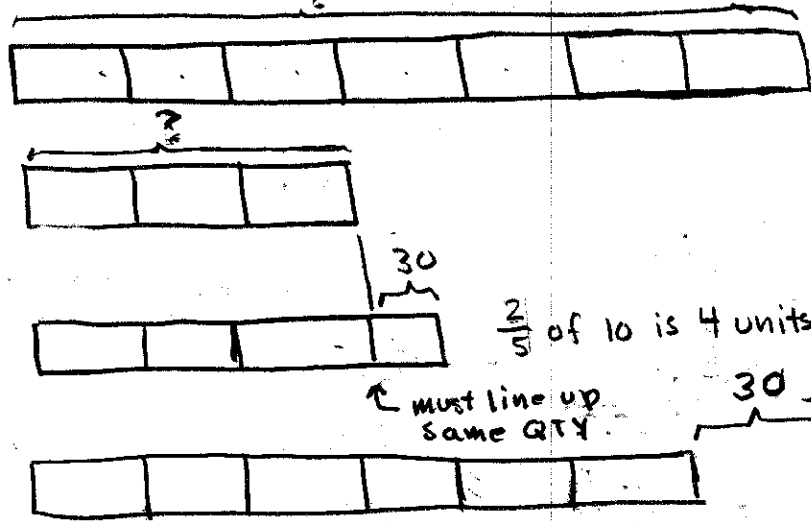 ?
30
2/5 of 10 is 4 units
must line up
same QTY.
30